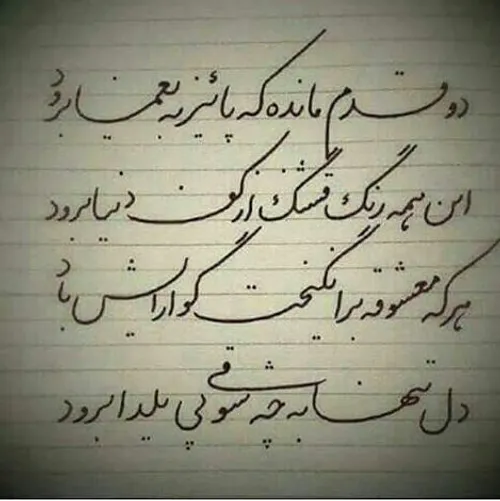 دو قدم مانده که پائیز به یغما برود
این همه رنگ قشنگ از کف دنیا برود
هرکه معشوقه برانگیخت گوارایش باد
دل تنها به چه شوقی پی یلدا برود